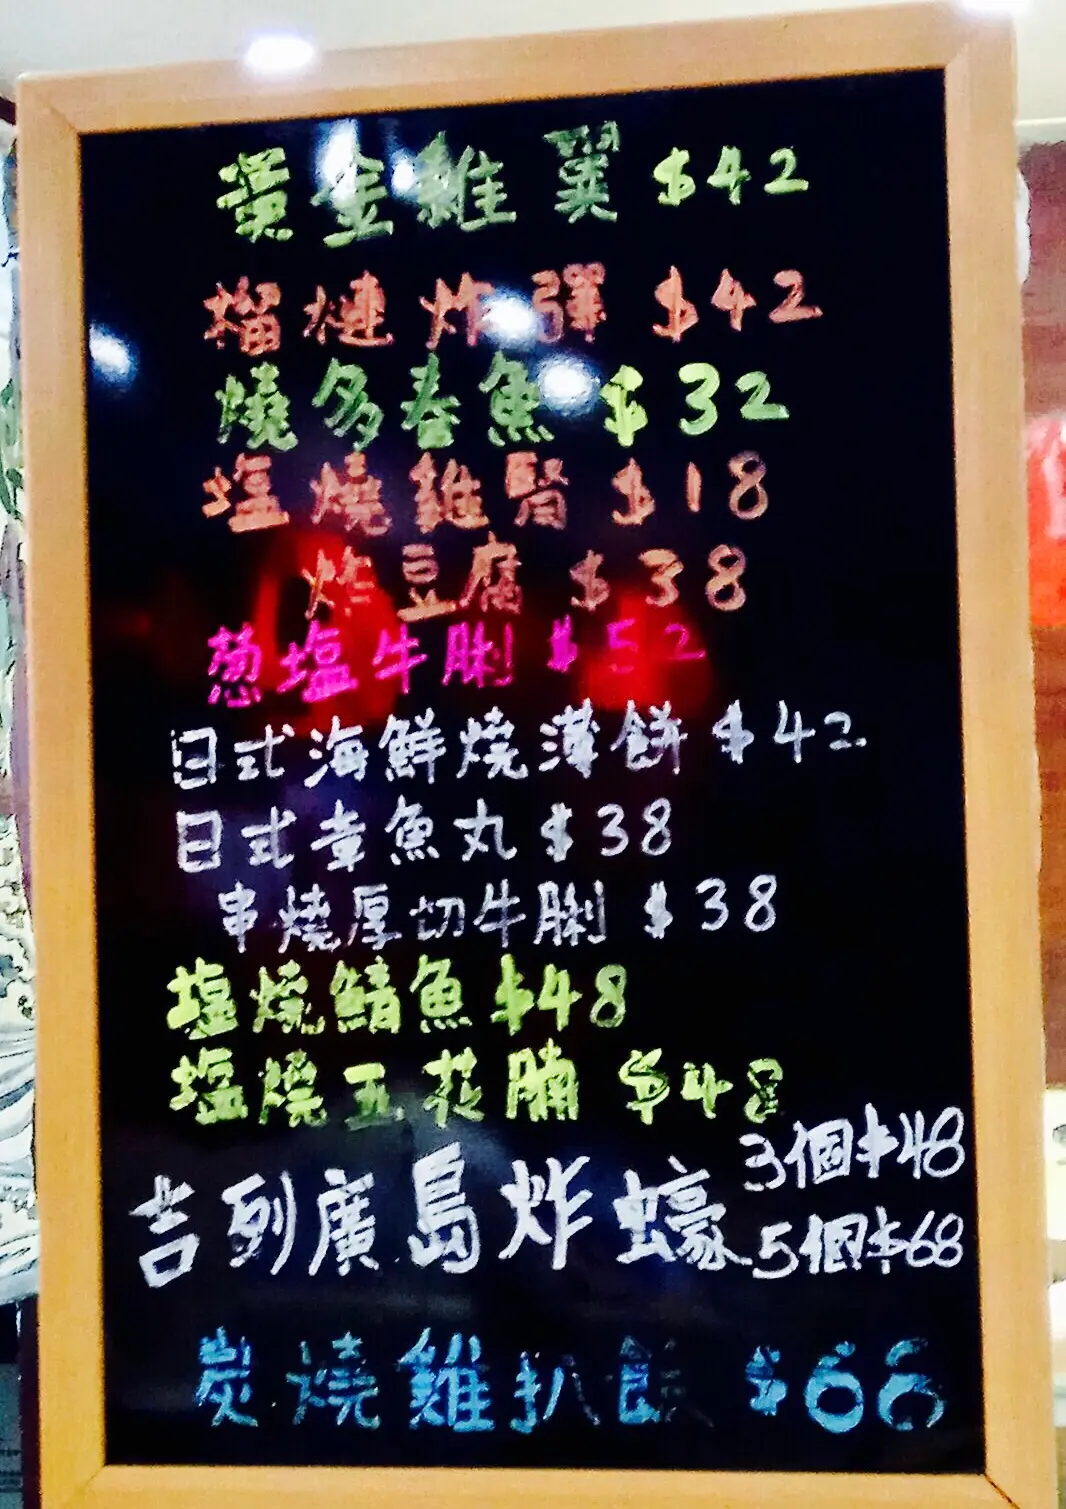 黃金雞翼 $42
榴槤炸彈 $42
燒多春魚 $32
塩燒雞腎 $18
炸豆腐 $38
葱塩牛脷 $52
日式海鮮燒薄餅 $42
日式章魚丸 $38
串燒厚切牛脷 $38
塩燒鯖魚 $48
塩燒五花腩 $48
吉列廣島炸蠔 3個$48
5個$68
炭燒雞扒飯 $66